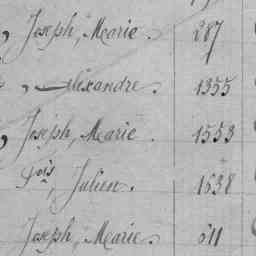 , Joseph, Marie. 287
, Alexandre. 1355
, Joseph, Marie. 1553
çois, Julien. 1638
Joseph, Marie. 611